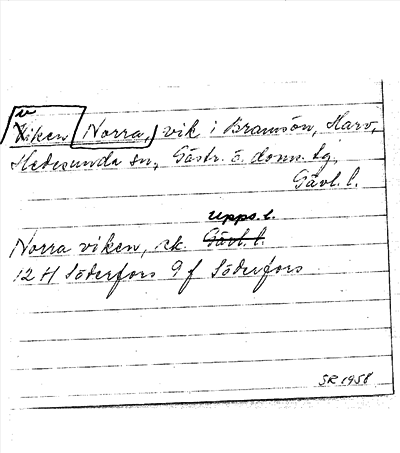 Viken, Norra, vik i Bramsön, Harv,
Hedesunda sn, Gästr. ö. doms. tg,
Gävl. l.
Upps. l.
Norra viken, sk. Gävl. l.
12 H Söderfors 9 f Söderfors
SR 1958